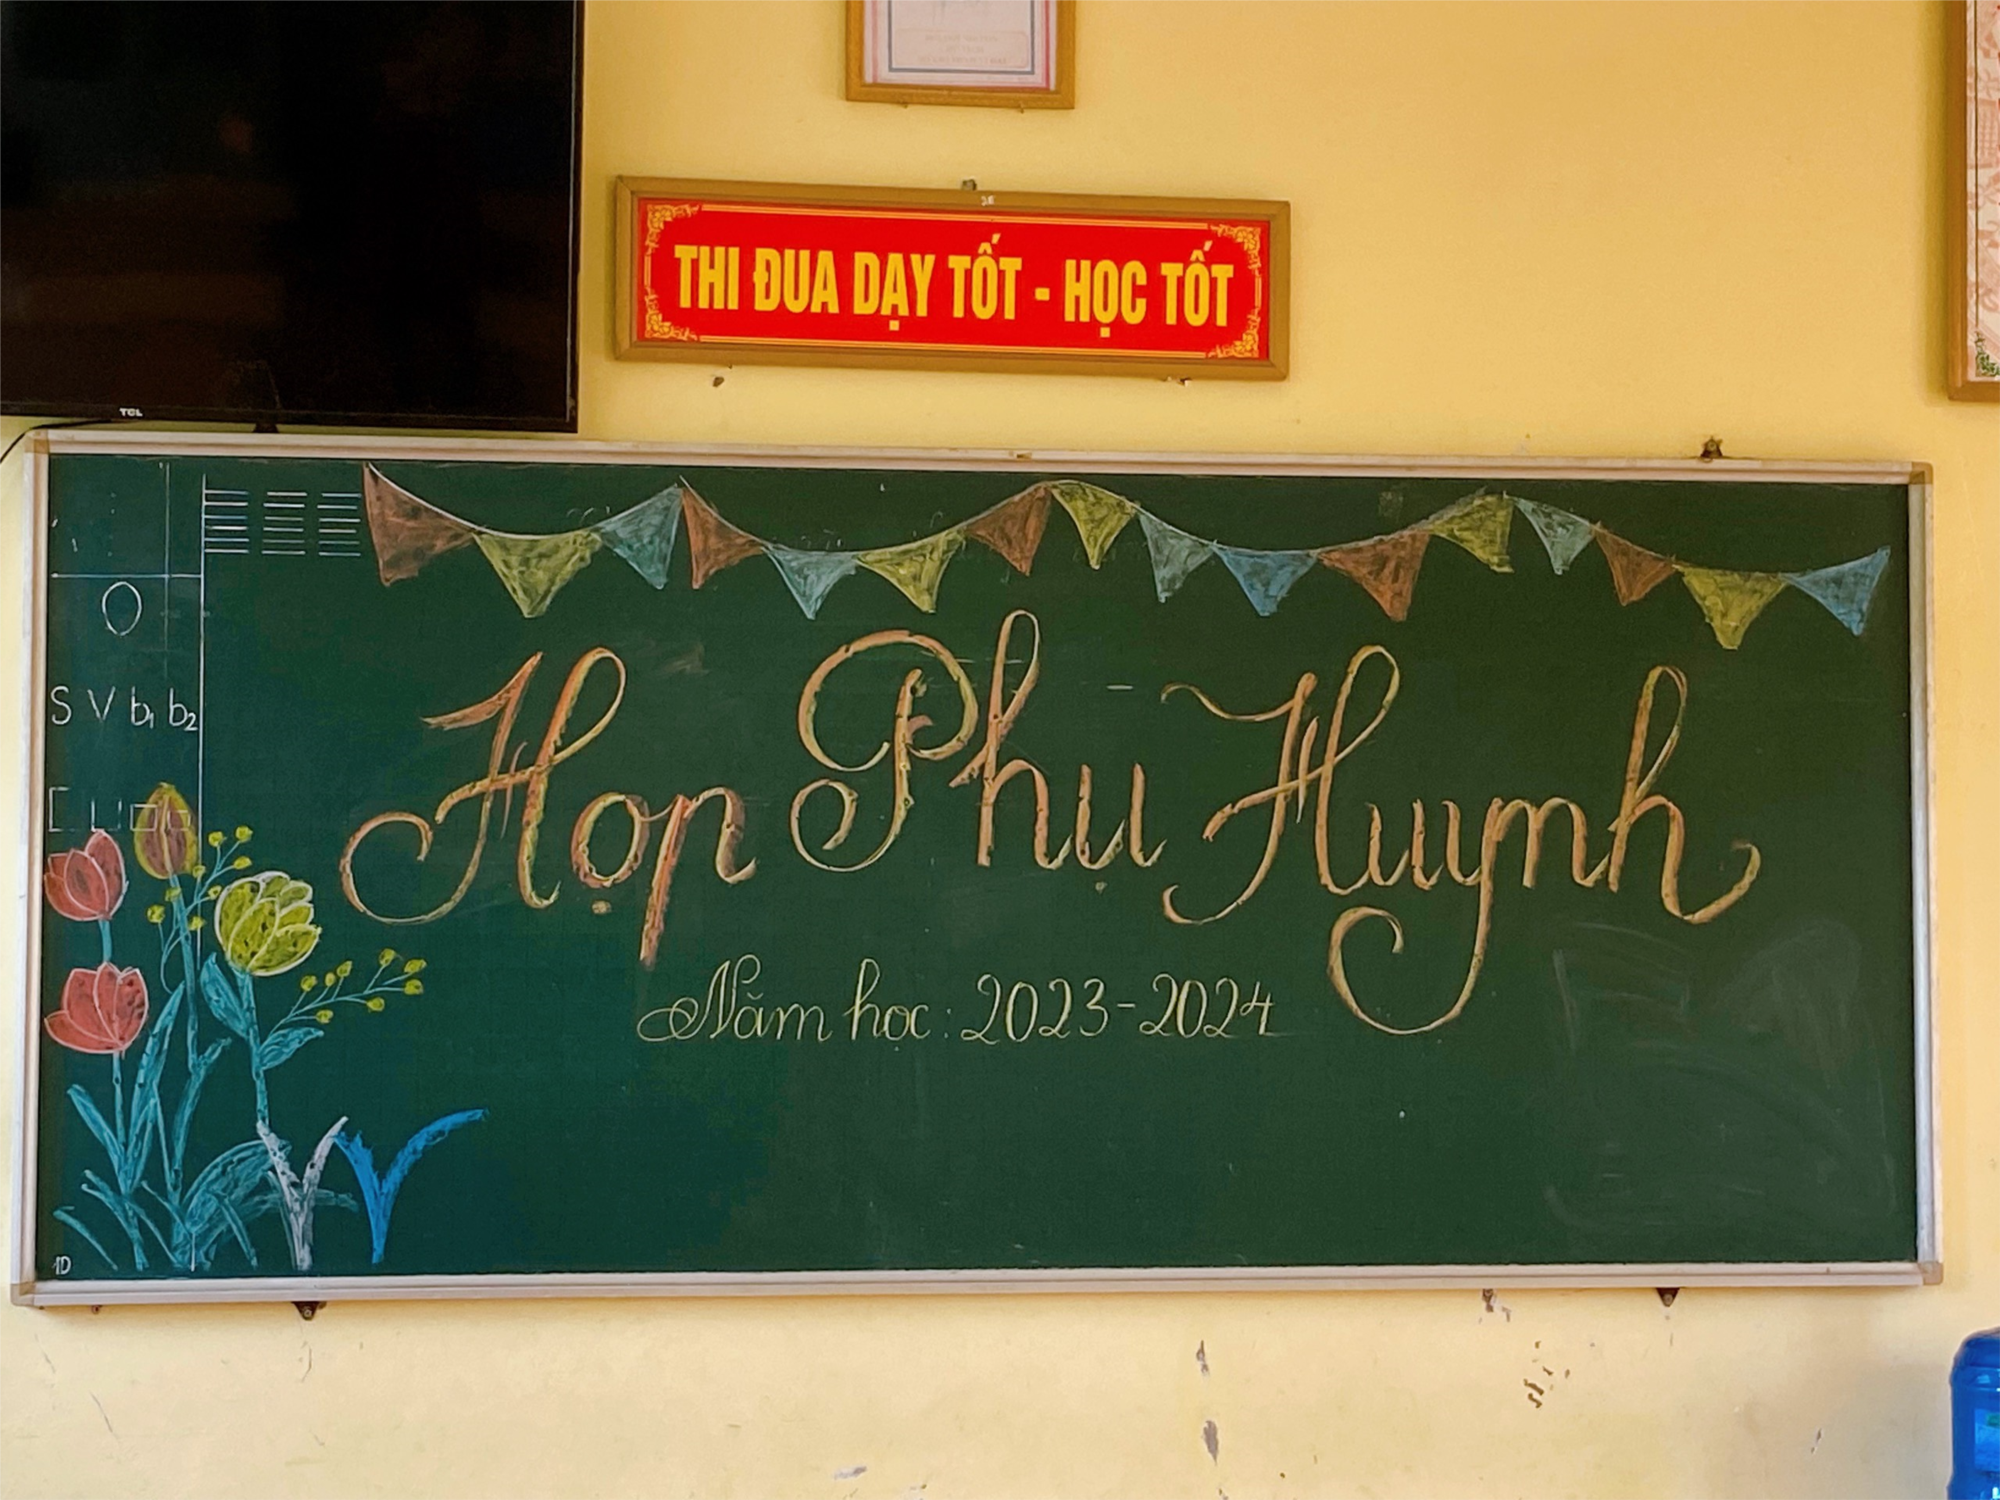 THI ĐUA DẠY TỐT - HỌC TỐT
TCL
O
S V b₁ b₂
Họp Phụ Huynh
Năm học: 2023-2024
1D